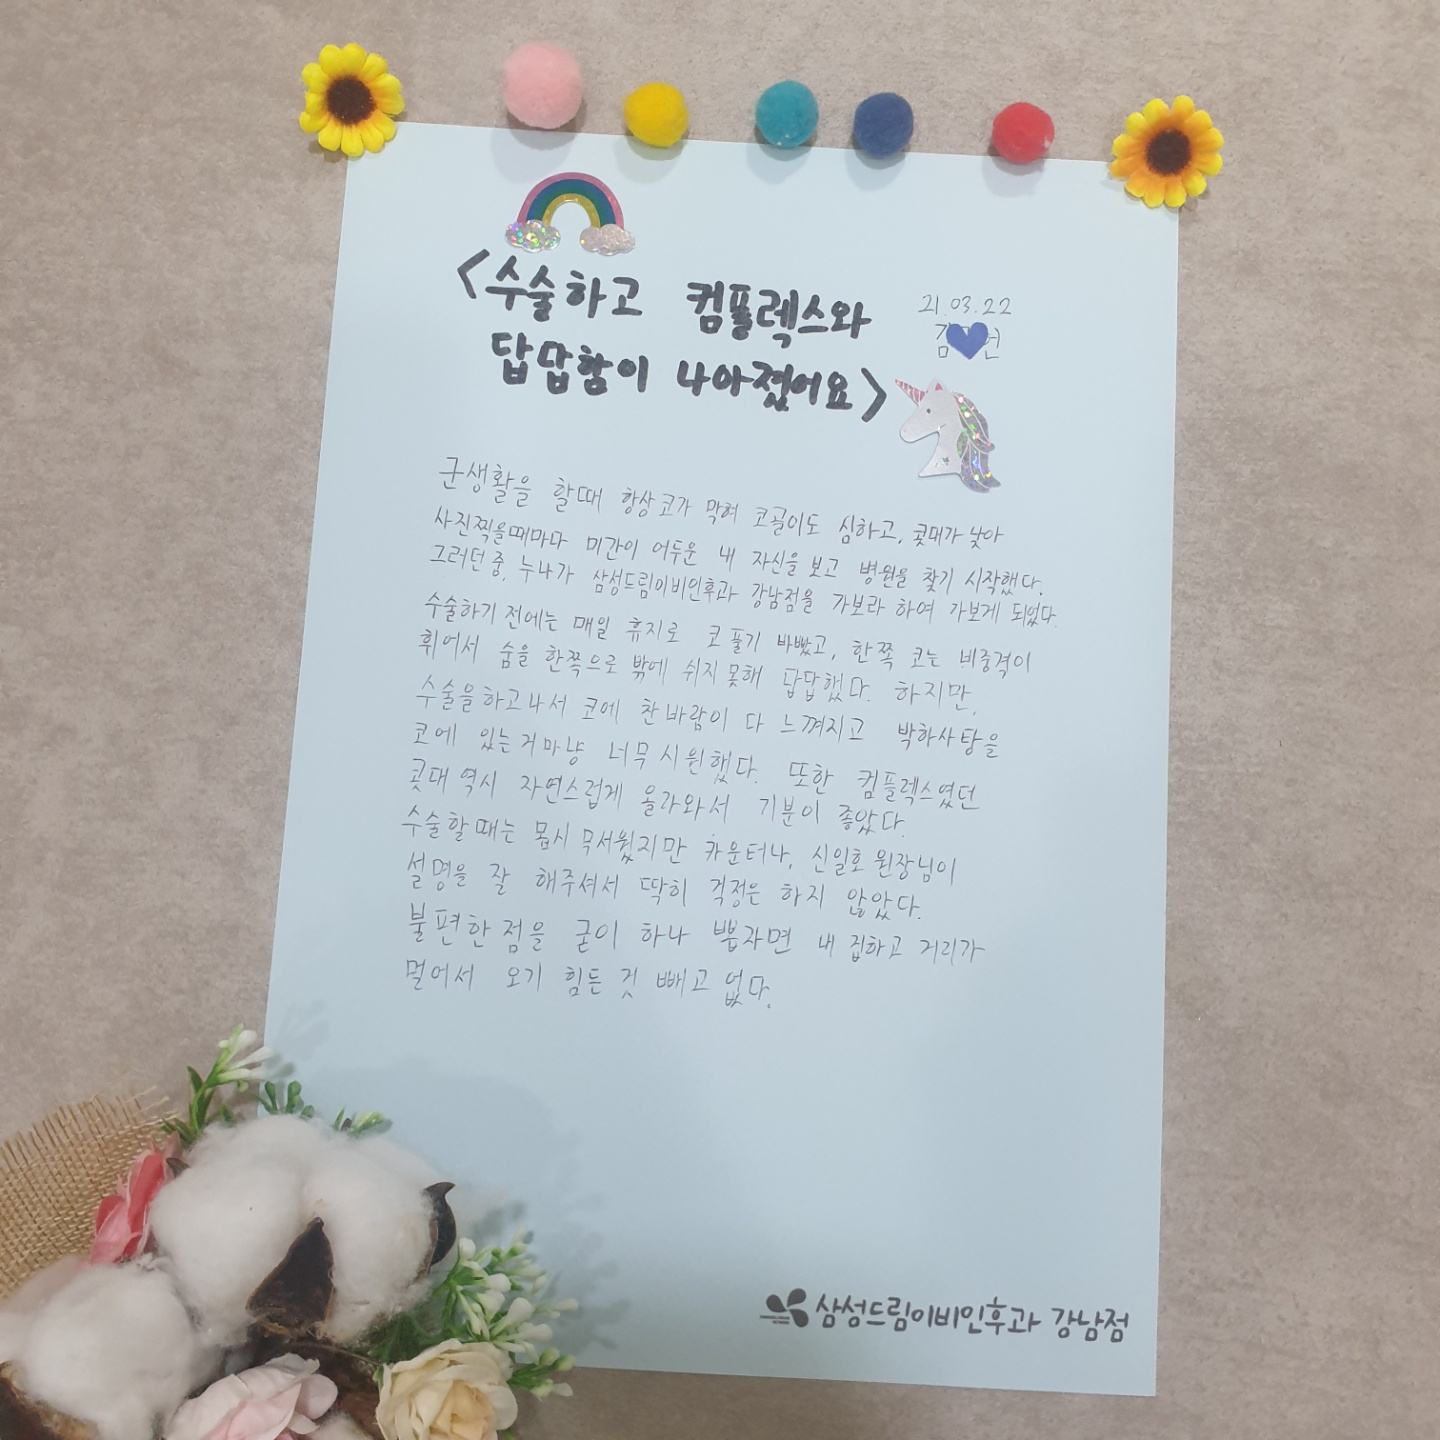 <수술하고 컴플렉스와
답답함이 나아졌어요>
21.03.22
김 현
군생활을 할때 항상 코가 막혀 코골이도 심하고, 콧대가 낮아
사진찍을때마다 미간이 어두운 내 자신을 보고 병원을 찾기 시작했다.
그러던 중, 누나가 삼성드림이비인후과 강남점을 가보라 하여 가보게 되었다.
수술하기 전에는 매일 휴지로 코 풀기 바빴고, 한쪽 코는 비중격이
휘어서 숨을 한쪽으로 밖에 쉬지 못해 답답했다. 하지만,
수술을 하고나서 코에 찬바람이 다 느껴지고 박하사탕을
코에 있는거 마냥 너무 시원했다. 또한 컴플렉스였던
콧대 역시 자연스럽게 올라와서 기분이 좋았다.
수술할때는 몹시 무서웠지만 카운터나, 신일호 원장님이
설명을 잘 해주셔서 딱히 걱정은 하지 않았다.
불편한 점을 굳이 하나 뽑자면 내 집하고 거리가
멀어서 오기 힘든 것 빼고 없다.
삼성드림이비인후과 강남점